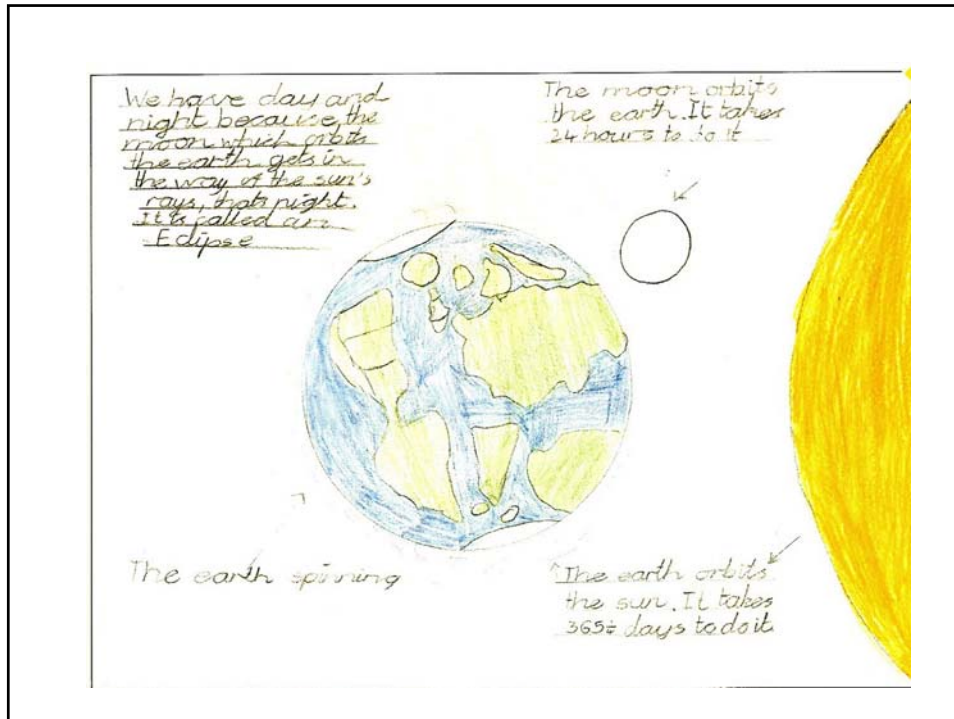 We have day and
night because the
moon which orbits
the earth gets in
the way of the sun's
rays, thats night.
It is called an
Eclipse
The moon orbits
the earth. It takes
24 hours to do it
The earth spinning
The earth orbits
the sun. It takes
365¼ days to do it